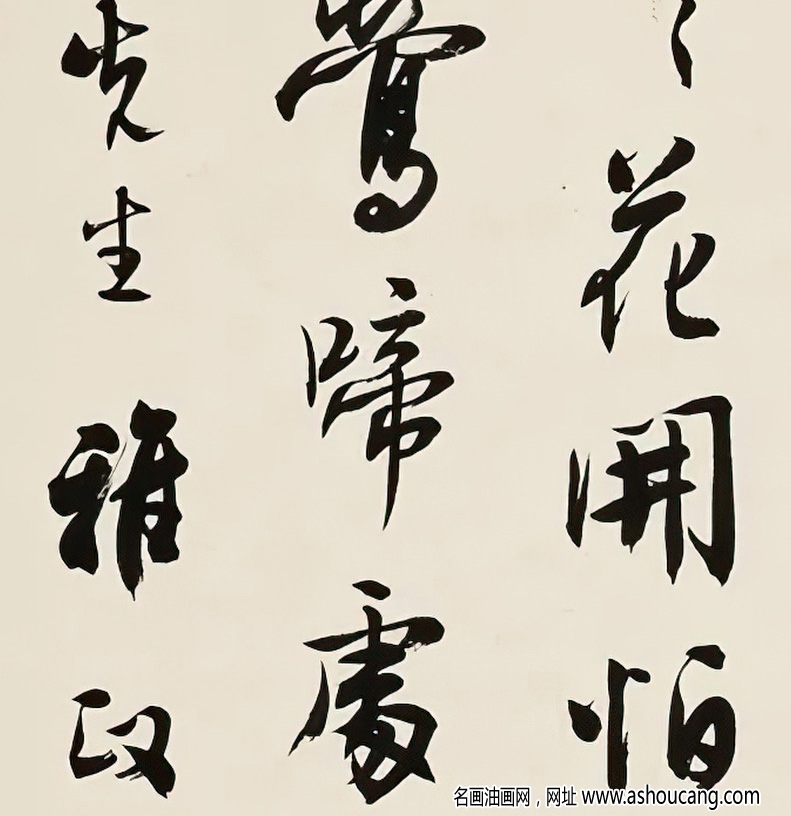 花開怕
鶯啼處
先生雅政
名画油画网，网址 www.ashoucang.com